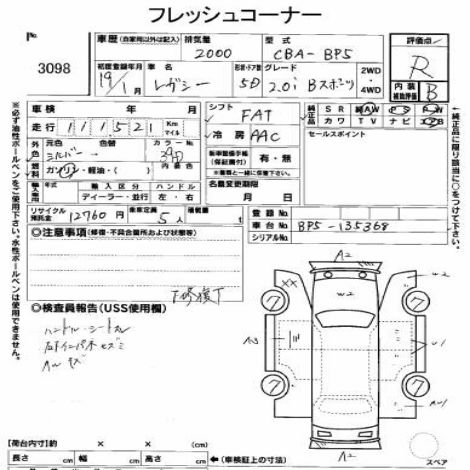 フレッシュコーナー
3098
車歴 (自家用以外は記入)
排気量 2000
型式 CBA-BP5
評価点 R
初度登録年月 19年1月
車名 レガシー
形状・ドア数 5D
グレード 2.0i Bスポーツ
2WD・4WD
内装補助評価 B
車検 年 月
シフト FAT
純正品 SR AW PS PW
走行 111521 Km マイル
冷房 AAC
カワ TV ナビ エアB
外装色 元色 シルバー 色替 カラーNo. 39D
セールスポイント
燃料 ガソリン・軽油・( ) 内装色
新車整備手帳(保証書付) 有・無
輸入車 年式 輸入区分 ハンドル
ディーラー・並行 左・右
名義変更期限 月 日
リサイクル預託金 12760円 乗車定員 5人 積載量 t
登録No.
◎注意事項 (修復・不具合箇所および状態等)
車台No. BP5-135368
シリアルNo.
下修復丁
◎検査員報告(USS使用欄)
ハンドル・シートスレ
AWキズ
※必ず油性ボールペンをご使用下さい。水性ボールペンは使用できません。
※純正品に限り該当に○をつけて下さい。
A2
W2
XX
W2
7
7
A3
U1
7
7
AW1
A2
スペア
【荷台内寸】約 × ×
長さ cm 幅 cm 高さ cm ←(車検証上の寸法)